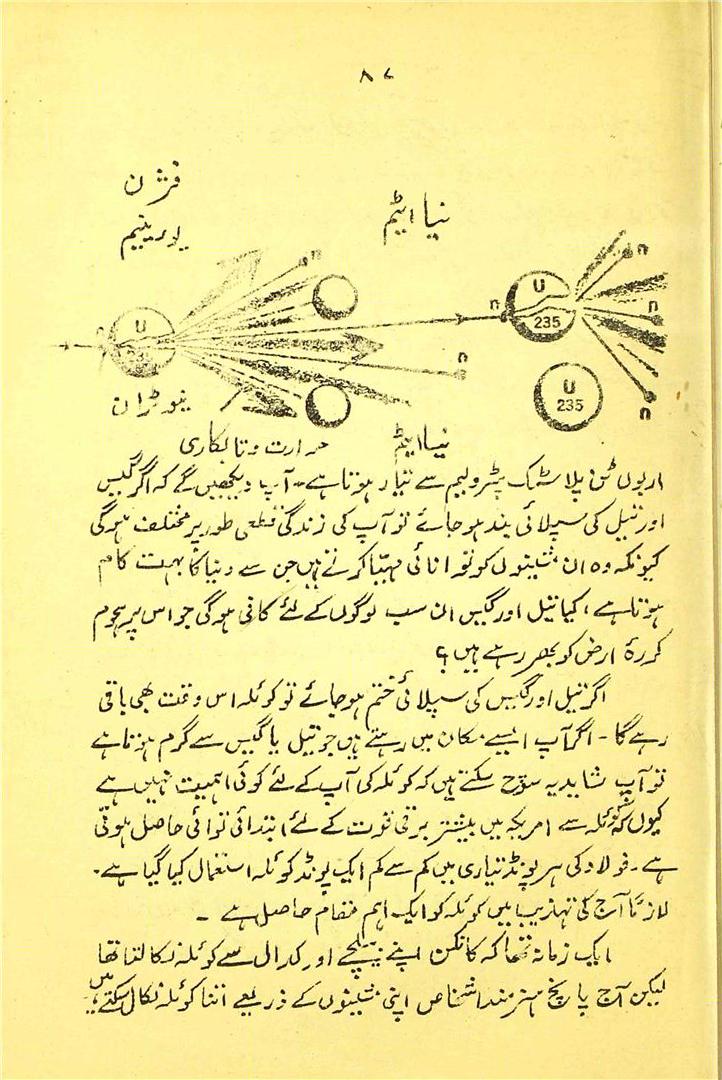 ۸۷
فژن
یورینیم
نیا ایٹم
n
U
n
U
235
n
n
U
235
n
n
U
235
نیوٹران
حرارت و تابکاری
نیا ایٹم
اربوں ٹن پلاسٹک پٹرولیم سے تیار ہوتا ہے۔ آپ دیکھیں گے کہ اگر گیس
اور تیل کی سپلائی بند ہو جائے تو آپ کی زندگی قطعی طور پر مختلف ہوگی
کیونکہ وہ ان مشینوں کو توانائی مہیّا کرتے ہیں جن سے دنیا کا بہت کام
ہوتا ہے، کیا تیل اور گیس ان سب لوگوں کے لئے کافی ہوگی جو اس پر ہجوم
کرۂ ارض کو بھر رہے ہیں؟
اگر تیل اور گیس کی سپلائی ختم ہو جائے تو کوئلہ اس وقت بھی باقی
رہے گا ۔ اگر آپ ایسے مکان میں رہتے ہیں جو تیل یا گیس سے گرم ہوتا ہے
تو آپ شاید یہ سوچ سکتے ہیں کہ کوئلہ کی آپ کے لئے کوئی اہمیت نہیں ہے
کیوں کہ کوئلہ سے امریکہ میں بیشتر برقی قوت کے لئے ابتدائی توانائی حاصل ہوتی
ہے۔ فولاد کی ہر پونڈ تیاری میں کم سے کم ایک پونڈ کوئلہ استعمال کیا گیا ہے۔
لازماً آج کی تہذیب میں کوئلہ کو ایک اہم مقام حاصل ہے ۔
ایک زمانہ تھا کہ کانکن اپنے بیلچے اور کدال سے کوئلہ نکالتا تھا
لیکن آج پانچ ہنرمند اشخاص اپنی مشینوں کے ذریعے اتنا کوئلہ نکال سکتے ہیں